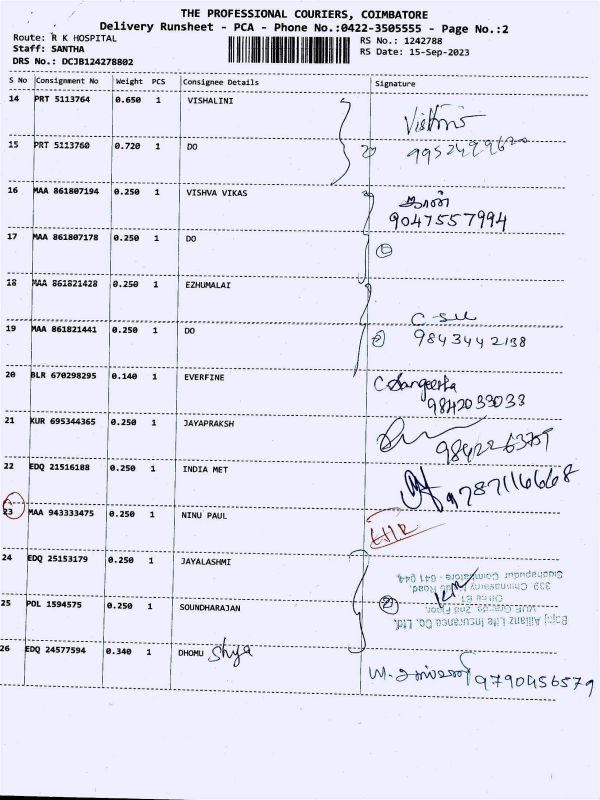 THE PROFESSIONAL COURIERS, COIMBATORE
Delivery Runsheet - PCA - Phone No.:0422-3505555 - Page No.:2
Route: R K HOSPITAL
Staff: SANTHA
DRS No.: DCJB124278802
RS No.: 1242788
RS Date: 15-Sep-2023
S No Consignment No Weight PCS Consignee Details Signature
14 PRT 5113764 0.650 1 VISHALINI
15 PRT 5113760 0.720 1 DO
16 MAA 861807194 0.250 1 VISHVA VIKAS
9047557994
17 MAA 861807178 0.250 1 DO
18 MAA 861821428 0.250 1 EZHUMALAI
19 MAA 861821441 0.250 1 DO 9843442138
20 BLR 670298295 0.140 1 EVERFINE C Sangeetha
9842033033
21 KUR 695344365 0.250 1 JAYAPRAKSH
22 EDQ 21516188 0.250 1 INDIA MET 9787116668
23 MAA 943333475 0.250 1 NINU PAUL
24 EDQ 25153179 0.250 1 JAYALASHMI
25 POL 1594575 0.250 1 SOUNDHARAJAN
Bajaj Allianz Life Insurance Co. Ltd.
2nd Floor,
339, Chinnasamy Road,
Siddhapudur Coimbatore - 641 044.
26 EDQ 24577594 0.340 1 DHOMU Shya
9790456579